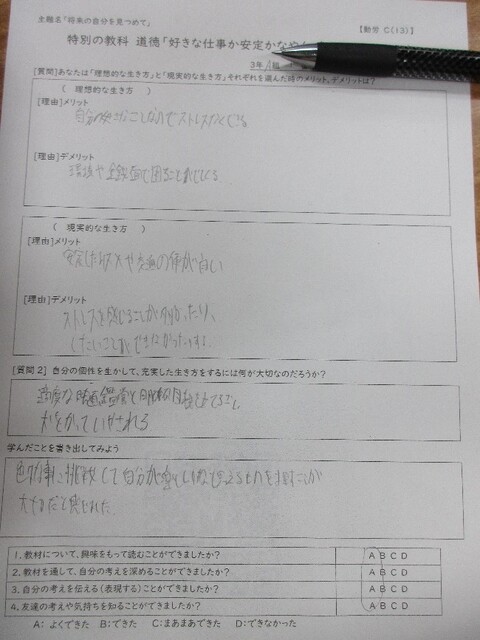 主題名「将来の自分を見つめて」 【勤労 C(13)】
特別の教科 道徳「好きな仕事か安定かなや
3年A組
[質問]あなたは「理想的な生き方」と「現実的な生き方」それぞれを選んだ時のメリット、デメリットは?
( 理想的な生き方 )
[理由]メリット
自分の好きなことしなのでストレスなくできる
[理由]デメリット
環境や金銭面で困ることがでてくる
( 現実的な生き方 )
[理由]メリット
安定した
[理由]デメリット
ストレスを感じることが
したいことができなかったりする
[質問2] 自分の個性を生かして、充実した生き方をするには何が大切なのだろうか?
適度な映画鑑賞と
学んだことを書き出してみよう
色々な事に挑戦して自分が楽しいなと思えるものを探すことが
大切だと感じれた
1.教材について、興味をもって読むことができましたか? A B C D
2.教材を通して、自分の考えを深めることができましたか? A B C D
3.自分の考えを伝える(表現する)ことができましたか? A B C D
4.友達の考えや気持ちを知ることができましたか? A B C D
A: よくできた B:できた C:まあまあできた D:できなかった